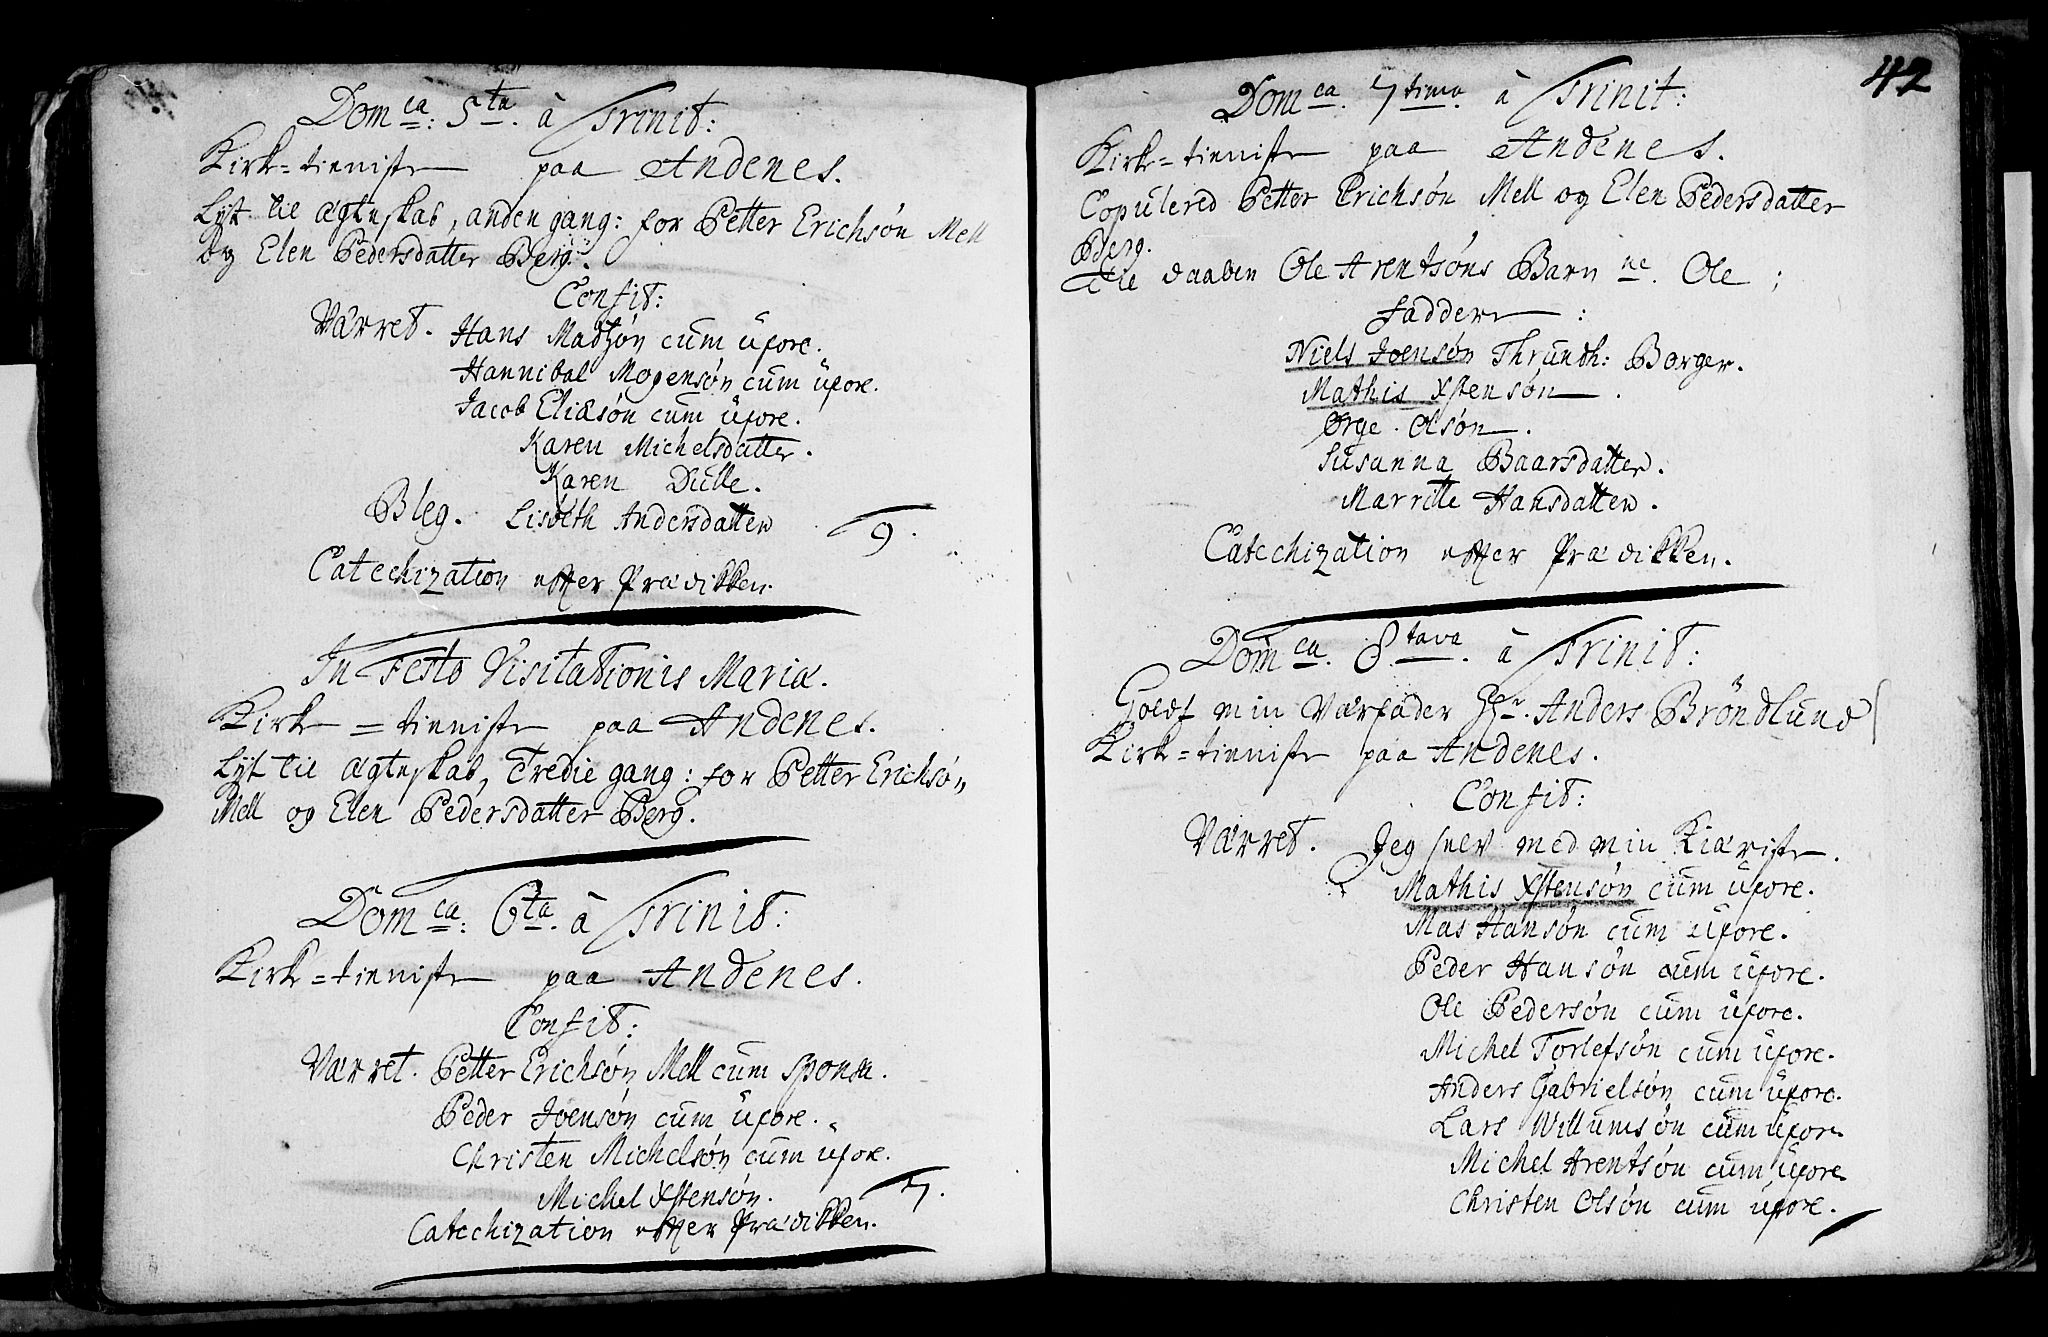 Dom ca: 5 ta. à Trinit:
Kirke=tieniste paa Andenes.
Lyst til Ægteskab, anden gang: for Petter Erichsøn Mell
og Elen Pedersdatter Berg.
Confit:
Værret. Hans Madzøn cum uxore.
Hannibal Mogensøn cum uxore.
Jacob Eliæsøn cum uxore.
Karen Michelsdatter.
Karen Dulle.
Bleg. Lisbeth Andersdatter 9.
Catechization efter Prædikken.
In Festo Visitationis Mariæ.
Kirke=tieniste paa Andenes.
Lyst til Ægteskab, Tredie gang: for Petter Erichsøn
Mell og Elen Pedersdatter Berg.
Dom ca: 6 ta. à Trinit:
Kirke=tieniste paa Andenes.
Confit:
Værret. Petter Erichsøn Mell cum sponsa.
Peder Joensøn cum uxore.
Christen Michelsøn cum uxore.
Michel Xstensøn. 7.
Catechization efter Prædikken.
42
Dom ca. 7 tima. à Trinit:
Kirke=tieniste paa Andenes.
Copulered Petter Erichsøn Mell og Elen Pedersdatter
Berg.
Til daaben Ole Arentsøns Barn ne. Ole;
Faddere:
Niels Joensøn Thrundh: Borger.
Mathis Xstensøn.
Ørge Olsøn.
Susanna Baarsdatter.
Marritte Hansdatter.
Catechization efter Prædikken.
Dom ca. 8 tava. à Trinit:
min Værfader Hr. Anders Bröndlund
Kirke=tieniste paa Andenes.
Confit:
Værret. Jeg selv med min Kiæriste.
Mathis Xstensøn cum uxore.
Mas Hansøn cum uxore.
Peder Hansøn cum uxore.
Ole Pedersøn cum uxore.
Michel Torlefsøn cum uxore.
Anders Gabrielsøn cum uxore.
Lars Willumsøn cum uxore.
Michel Arentsøn cum uxore.
Christen Olsøn cum uxore.